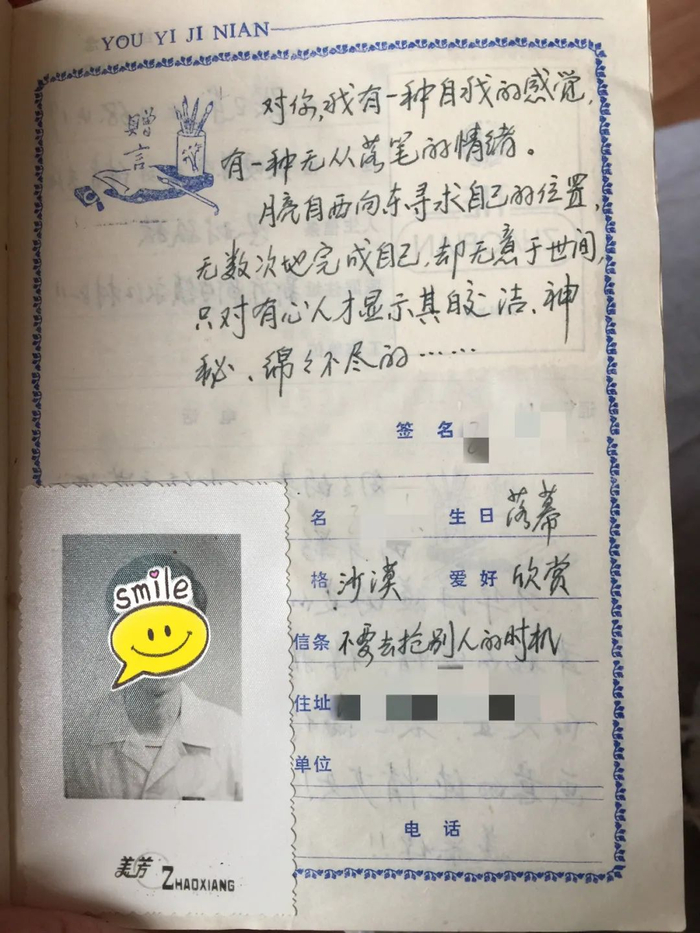 YOU YI JI NIAN
赠
言
对你,我有一种自我的感觉,
有一种无从落笔的情绪。
月亮自西向东寻求自己的位置,
无数次地完成自己,却无意于世间,
只对有心人才显示其皎洁、神
秘、绵々不尽的……
签 名
名 生日 落幕
格 沙漠 爱好 欣赏
信条 不要去抢别人的时机
住址
单位
电 话
smile
美芳 ZHAOXIANG